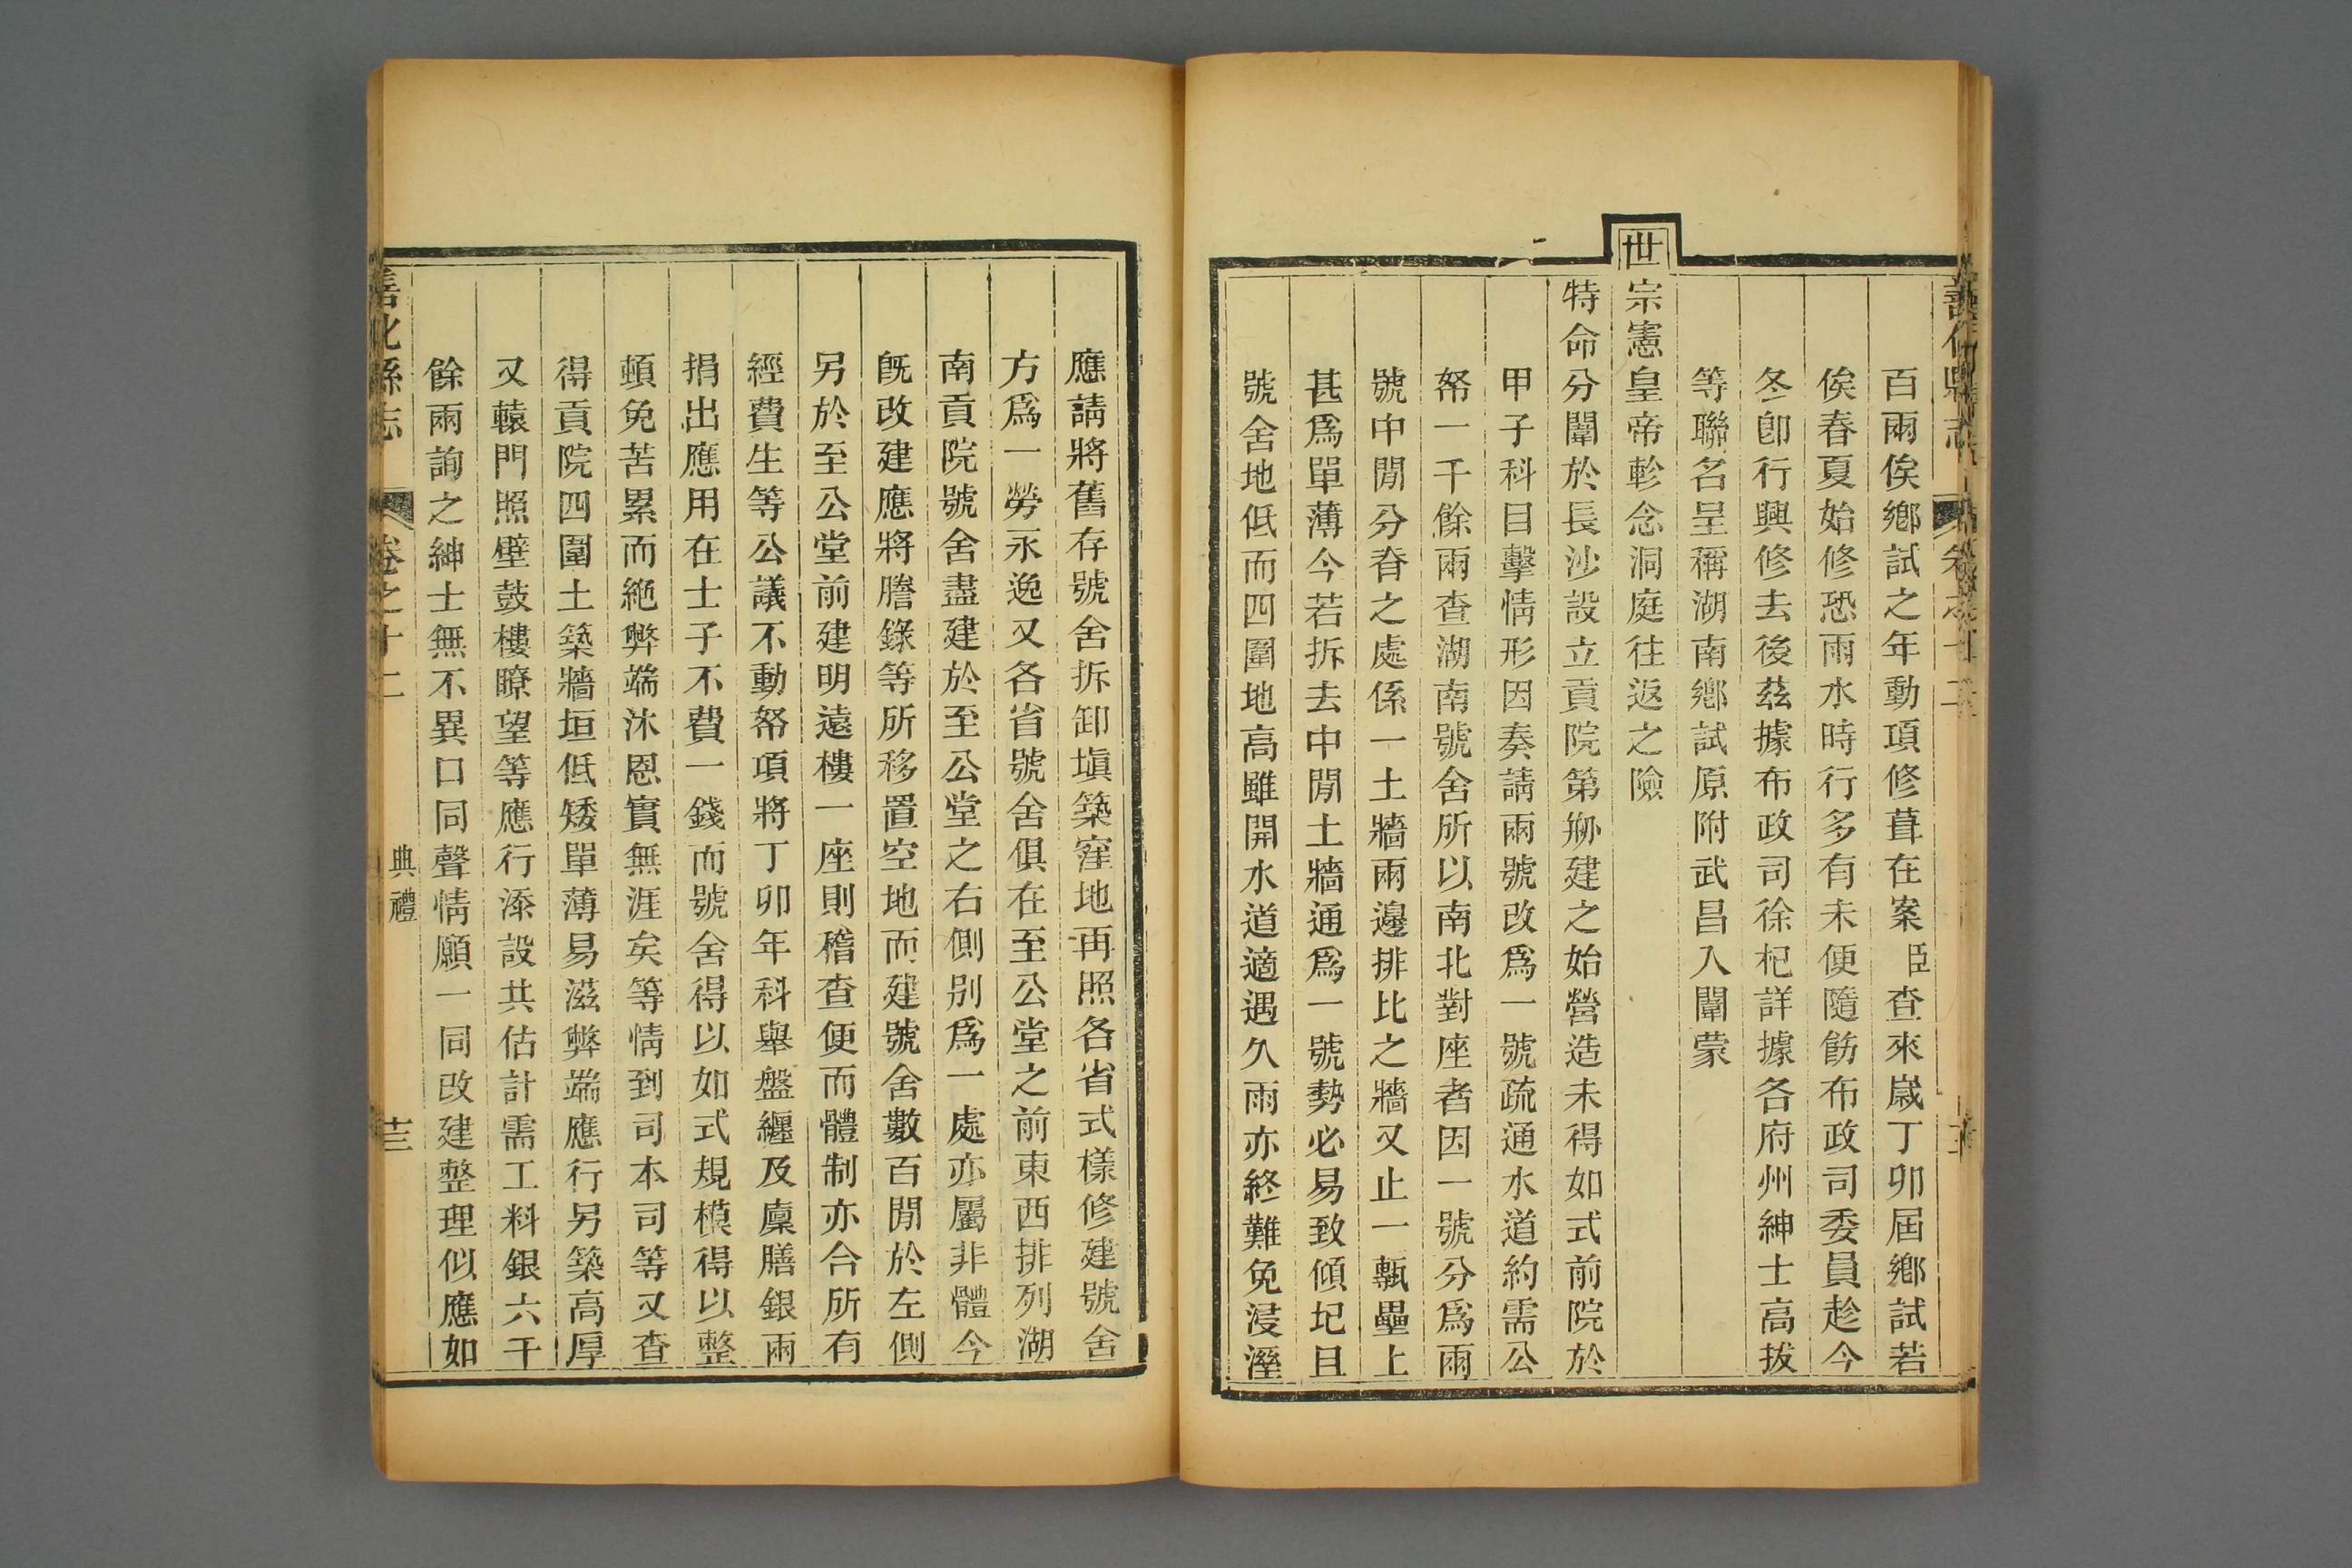 百兩俟鄉試之年動項修葺在案臣查來歲丁卯屆鄉試若
俟春夏始修恐雨水時行多有未便隨飭布政司委員趁今
冬卽行興修去後茲據布政司徐杞詳據各府州紳士高拔
等聯名呈稱湖南鄉試原附武昌入闈蒙
世宗憲皇帝軫念洞庭往返之險
特命分闈於長沙設立貢院第剏建之始營造未得如式前院於
甲子科目擊情形因奏請兩號改爲一號疏通水道約需公
帑一千餘兩查湖南號舍所以南北對座者因一號分爲兩
號中閒分脊之處係一土牆兩邊排比之牆又止一甎壘上
甚爲單薄今若拆去中閒土牆通爲一號勢必易致傾圮且
號舍地低而四圍地高雖開水道適遇久雨亦終難免浸溼
應請將舊存號舍拆卸塡築窪地再照各省式樣修建號舍
方爲一勞永逸又各省號舍俱在至公堂之前東西排列湖
南貢院號舍盡建於至公堂之右側別爲一處亦屬非體今
旣改建應將謄錄等所移置空地而建號舍數百閒於左側
另於至公堂前建明遠樓一座則稽查便而體制亦合所有
經費生等公議不動帑項將丁卯年科舉盤纏及廩膳銀兩
捐出應用在士子不費一錢而號舍得以如式規模得以整
頓免苦累而絶弊端沐恩實無涯矣等情到司本司等又查
得貢院四圍土築牆垣低矮單薄易滋弊端應行另築高厚
又轅門照壁鼓樓瞭望等應行添設共估計需工料銀六千
餘兩詢之紳士無不異口同聲情願一同改建整理似應如
善化縣志 卷之十二 典禮 十三